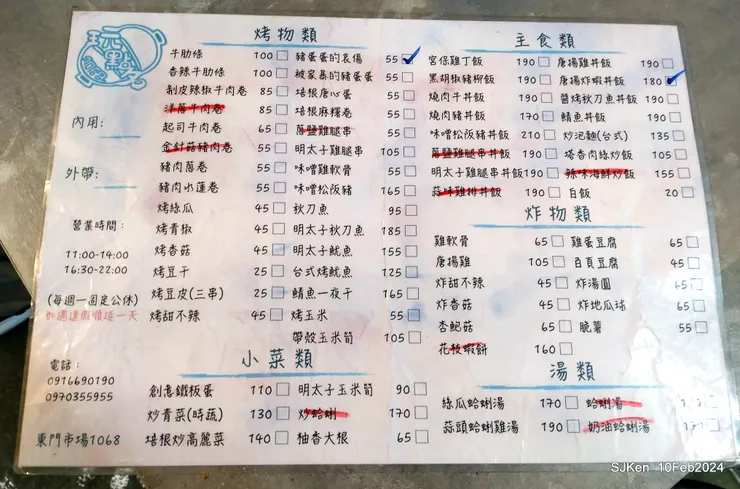 玩點
內用:
外帶:
營業時間:
11:00-14:00
16:30-22:00
(每週一固定公休)
如遇連假順延一天
電話:
0916690190
0970355955
東門市場1068
烤物類
牛肋條 100
香辣牛肋條 100
剝皮辣椒牛肉卷 85
洋蔥牛肉卷 85
起司牛肉卷 65
金針菇豬肉卷 55
豬肉蔥卷 55
豬肉水蓮卷 55
烤絲瓜 45
烤青椒 45
烤香菇 45
烤豆干 25
烤豆皮(三串) 25
烤甜不辣 45
豬蛋蛋的哀傷 55
被家暴的豬蛋蛋 55
培根溏心蛋 55
培根麻糬卷 55
蔥鹽雞腿串 55
明太子雞腿串 55
味噌雞軟骨 55
味噌松阪豬 165
秋刀魚 95
明太子秋刀魚 185
明太子魷魚 155
台式烤魷魚 125
鯖魚一夜干 165
烤玉米 55
帶殼玉米筍 105
小菜類
創意鐵板蛋 110
炒青菜(時蔬) 130
培根炒高麗菜 140
明太子玉米筍 90
炒蛤蜊 170
柚香大根 65
主食類
宮保雞丁飯 190
黑胡椒豬柳飯 190
燒肉牛丼飯 190
燒肉豬丼飯 170
味噌松阪豬丼飯 210
蔥鹽雞腿串丼飯 190
明太子雞腿串丼飯 190
蒜味雞排丼飯 190
唐揚雞丼飯 190
唐揚炸蝦丼飯 180
醬烤秋刀魚丼飯 190
鯖魚丼飯 190
炒泡麵(台式) 135
塔香肉絲炒飯 105
辣味海鮮炒飯 155
白飯 20
炸物類
雞軟骨 65
唐揚雞 105
炸甜不辣 55
炸香菇 65
杏鮑菇 65
花枝蝦餅 160
雞蛋豆腐 65
百頁豆腐 45
炸湯圓 65
炸地瓜球 65
脆薯 55
湯類
絲瓜蛤蜊湯 170
蒜頭蛤蜊雞湯 190
蛤蜊湯
奶油蛤蜊湯
SJKen 10Feb2024